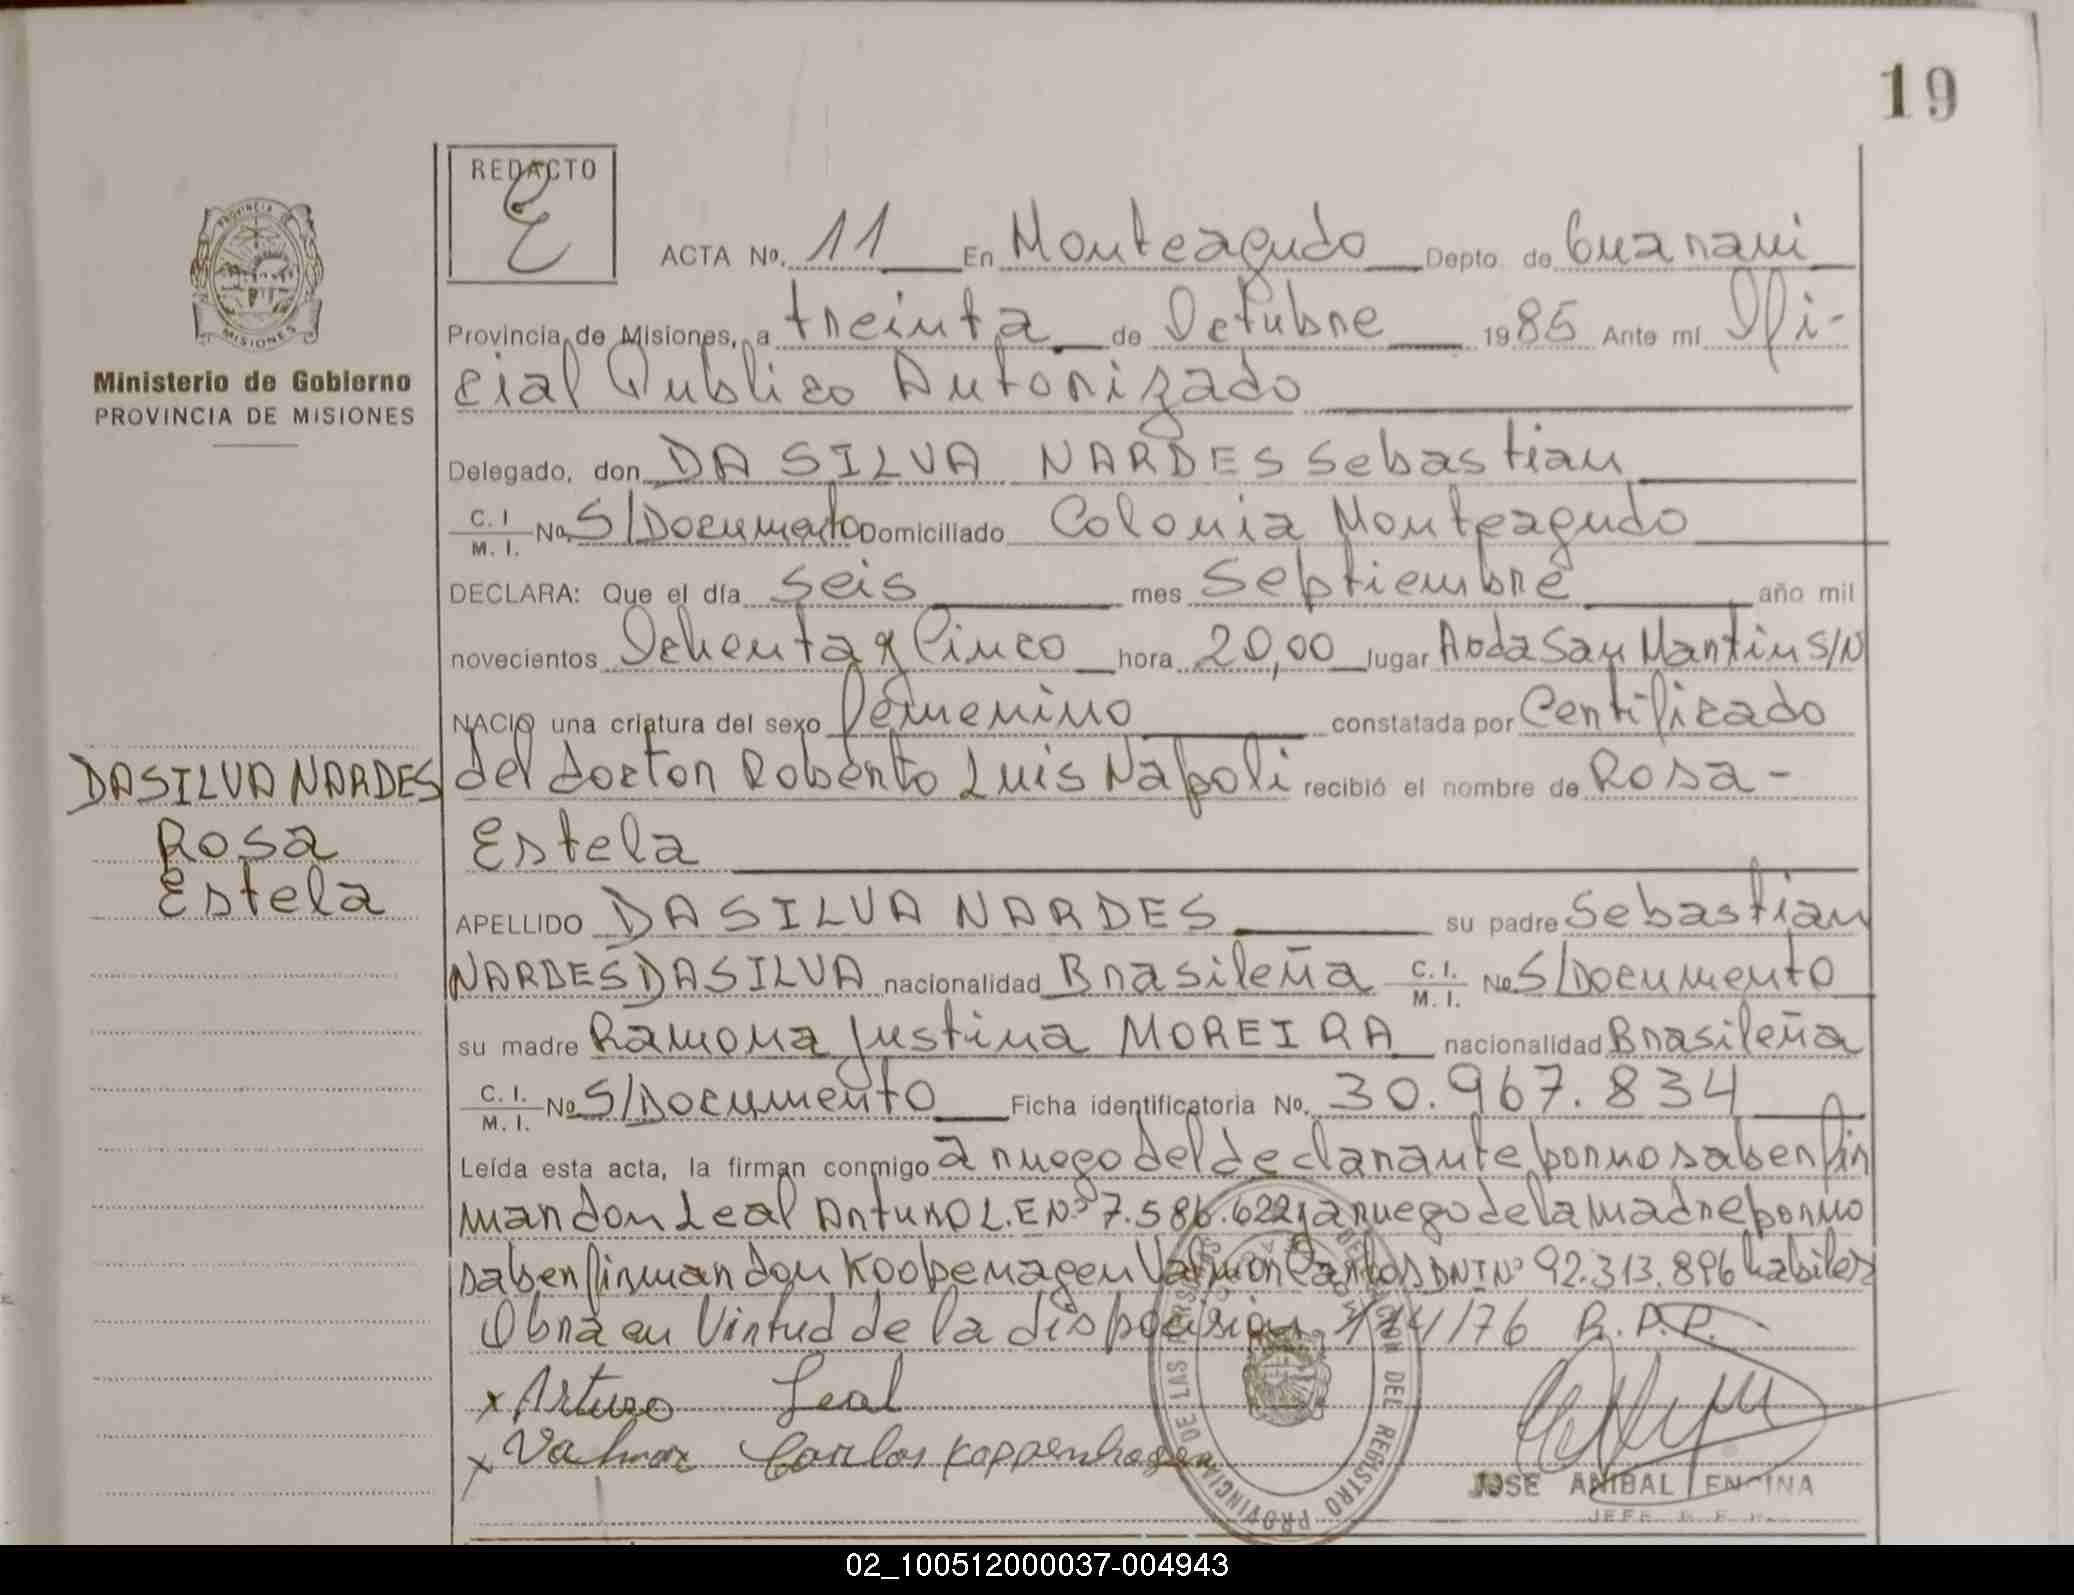 19
REDACTO
ACTA No. 11 En Monteagudo Depto de Guarani
Provincia de Misiones, a treinta de Octubre 1985 Ante mí Ofi-
cial Publico Autorizado
Ministerio de Gobierno
PROVINCIA DE MISIONES
Delegado, don DA SILVA NARDES Sebastian
C. I. M. I. No. S/Documento Domiciliado Colonia Monteagudo
DECLARA: Que el día seis mes Septiembre año mil
novecientos Ochenta y Cinco hora 20,00 lugar Avda San Martin S/N
NACIO una criatura del sexo femenino constatada por Certificado
del doctor Roberto Luis Napoli recibió el nombre de Rosa -
Estela
DA SILVA NARDES
Rosa
Estela
APELLIDO DA SILVA NARDES su padre Sebastian
NARDES DA SILVA nacionalidad Brasileña C. I. M. I. No S/Documento
su madre Ramona Justina MOREIRA nacionalidad Brasileña
C. I. M. I. No S/Documento Ficha identificatoria No. 30.967.834
Leída esta acta, la firman conmigo a ruego del declarante por no saber fir
mar don Leal Arturo L.E Nº 7.586.622 y a ruego de la madre por no
saber firmar don Koopenagen Valmor Carlos DNI Nº 92.313.896 habiles
Obra en Virtud de la dispocision 114/76 R.P.P.
x Arturo Leal
x Valmor Carlos Koppenhagen
REGISTRO PROVINCIAL DE LAS PERSONAS
JOSE ANIBAL ENCINA
JEFE
02_100512000037-004943